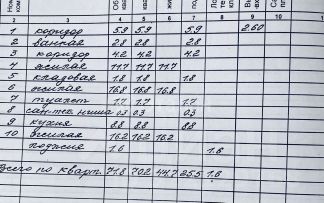 2 3 4 5 6 7 8 9 10
1 коридор 5.9 5.9 5.9 2.60
2 ванная 2.8 2.8 2.8
3 коридор 4.2 4.2 4.2
4 жилая 11.7 11.7 11.7
5 кладовая 1.8 1.8 1.8
6 жилая 16.8 16.8 16.8
7 туалет 1.7 1.7 1.7
8 сан-тех. ниша 0.3 0.3 0.3
9 кухня 8.8 8.8 8.8
10 жилая 16.2 16.2 16.2
лоджия 1.6 1.6
Всего по кварт. 71.8 70.2 44.7 25.5 1.6